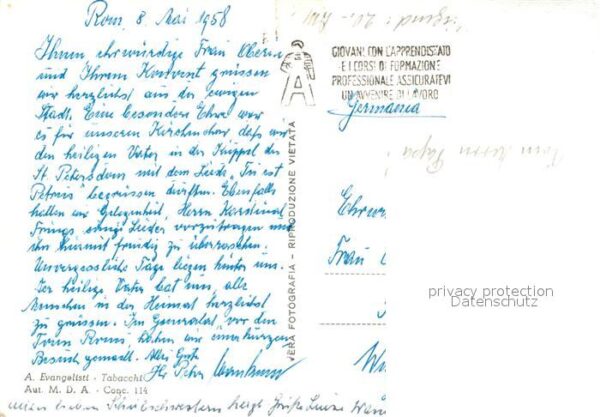 Rom, 8. Mai 1958
Ihnen ehrwürdige Frau Oberin
und Ihrem Konvent grüssen
wir herzlichst aus der ewigen
Stadt. Eine besondere Ehre war
es für unseren Kirchenchor daß wir
den heiligen Vater in der Kuppel des
St. Petersdom mit dem Liede "Tu est
Petrus" begrüssen durften. Ebenfalls
hatten wir Gelegenheit, Herrn Kardinal
Frings einige Lieder vorzutragen und
ihn hiermit freudig zu überraschen.
Unvergessliche Tage liegen hinter uns.
Der heilige Vater bat uns, alle
Menschen in der Heimat herzlichst
zu grüssen. Im Generalat, vor den
Toren Roms, haben wir einen kurzen
Besuch gemacht. Alles Gute
Ihr Peter
meinen lieben Schulschwestern herzl. Grüße Luise
A. Evangelisti - Tabacchi
Aut. M. D. A. - Conc. 114
VERA FOTOGRAFIA - RIPRODUZIONE VIETATA
GIOVANI CON L'APPRENDISTATO
E I CORSI DI FORMAZIONE
PROFESSIONALE ASSICURATEVI
UN AVVENIRE DI LAVORO
Germania
vom Papa!
Ehrw
Frau
privacy protection
Datenschutz